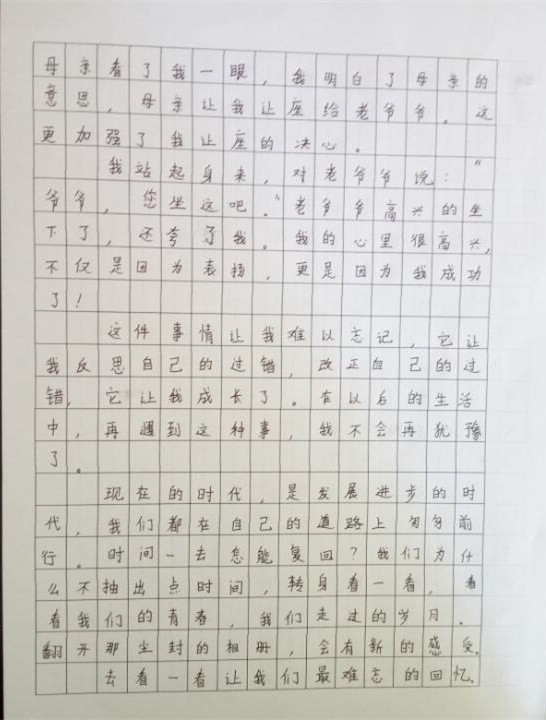 母亲看了我一眼，我明白了母亲的
意思，母亲让我让座给老爷爷。这
更加强了我让座的决心。
我站起身来，对老爷爷说：“
爷爷，您坐这吧。”老爷爷高兴的坐
下了，还夸了我。我的心里很高兴，
不仅是因为表扬，更是因为我成功
了！
这件事情让我难以忘记，它让
我反思自己的过错，改正自己的过
错，它让我成长了。在以后的生活
中，再遇到这种事，我不会再犹豫
了。
现在的时代，是发展进步的时
代，我们都在自己的道路上匆匆前
行。时间一去怎能复回？我们为什
么不抽出点时间，转身看一看，看
看我们的青春，我们走过的岁月。
翻开那尘封的相册，会有新的感受。
去看一看让我们最难忘的回忆。